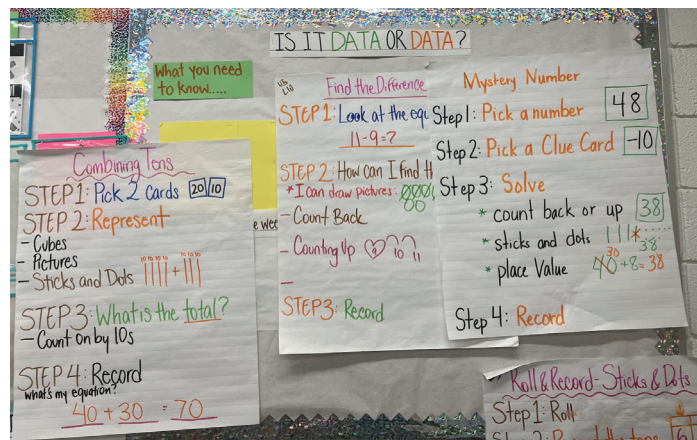 IS IT DATA OR DATA?
What you need
to know.....
Combining Tens
STEP 1: Pick 2 cards 20 10
STEP 2: Represent
- Cubes
- Pictures
- Sticks and Dots 10 10 10 10 + 10 10 10
STEP 3: What is the total?
- Count on by 10s
STEP 4: Record
what's my equation?
40 + 30 = 70
U5
L10
Find the Difference
STEP 1: Look at the equ
11-9=?
STEP 2: How can I find th
* I can draw pictures:
- Count Back
- Counting Up 9 10 11
-
STEP 3: Record
Mystery Number
Step 1: Pick a number 48
Step 2: Pick a Clue Card -10
Step 3: Solve
* count back or up 38
* sticks and dots 38
* place Value 40 30 +8=38
Step 4: Record
Roll & Record - Sticks & Dots
Step 1: Roll
6